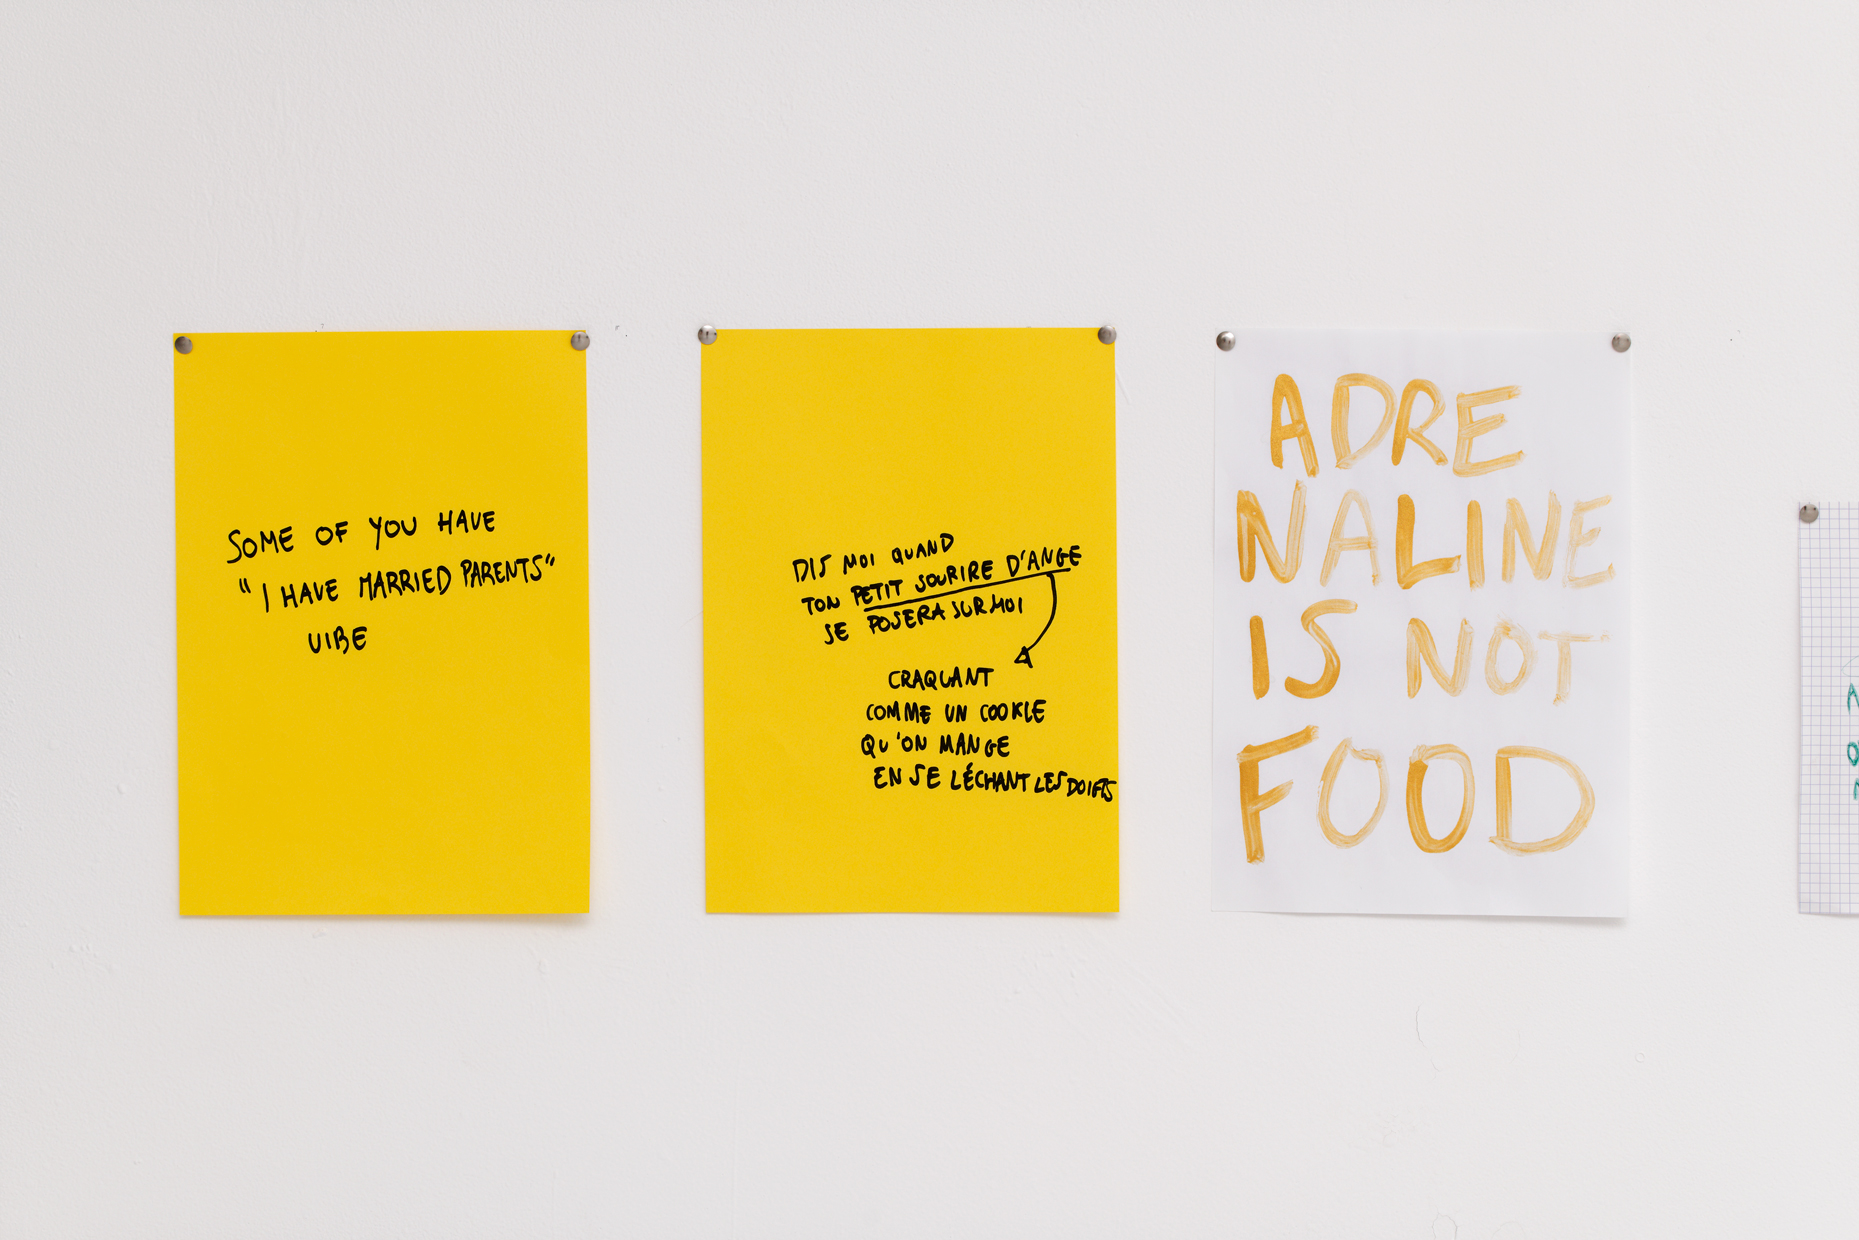 SOME OF YOU HAVE
"I HAVE MARRIED PARENTS"
VIBE
DIS MOI QUAND
TON PETIT SOURIRE D'ANGE
SE POSERA SUR MOI
CRAQUANT
COMME UN COOKIE
QU'ON MANGE
EN SE LÉCHANT LES DOIGTS
ADRE
NALINE
IS NOT
FOOD